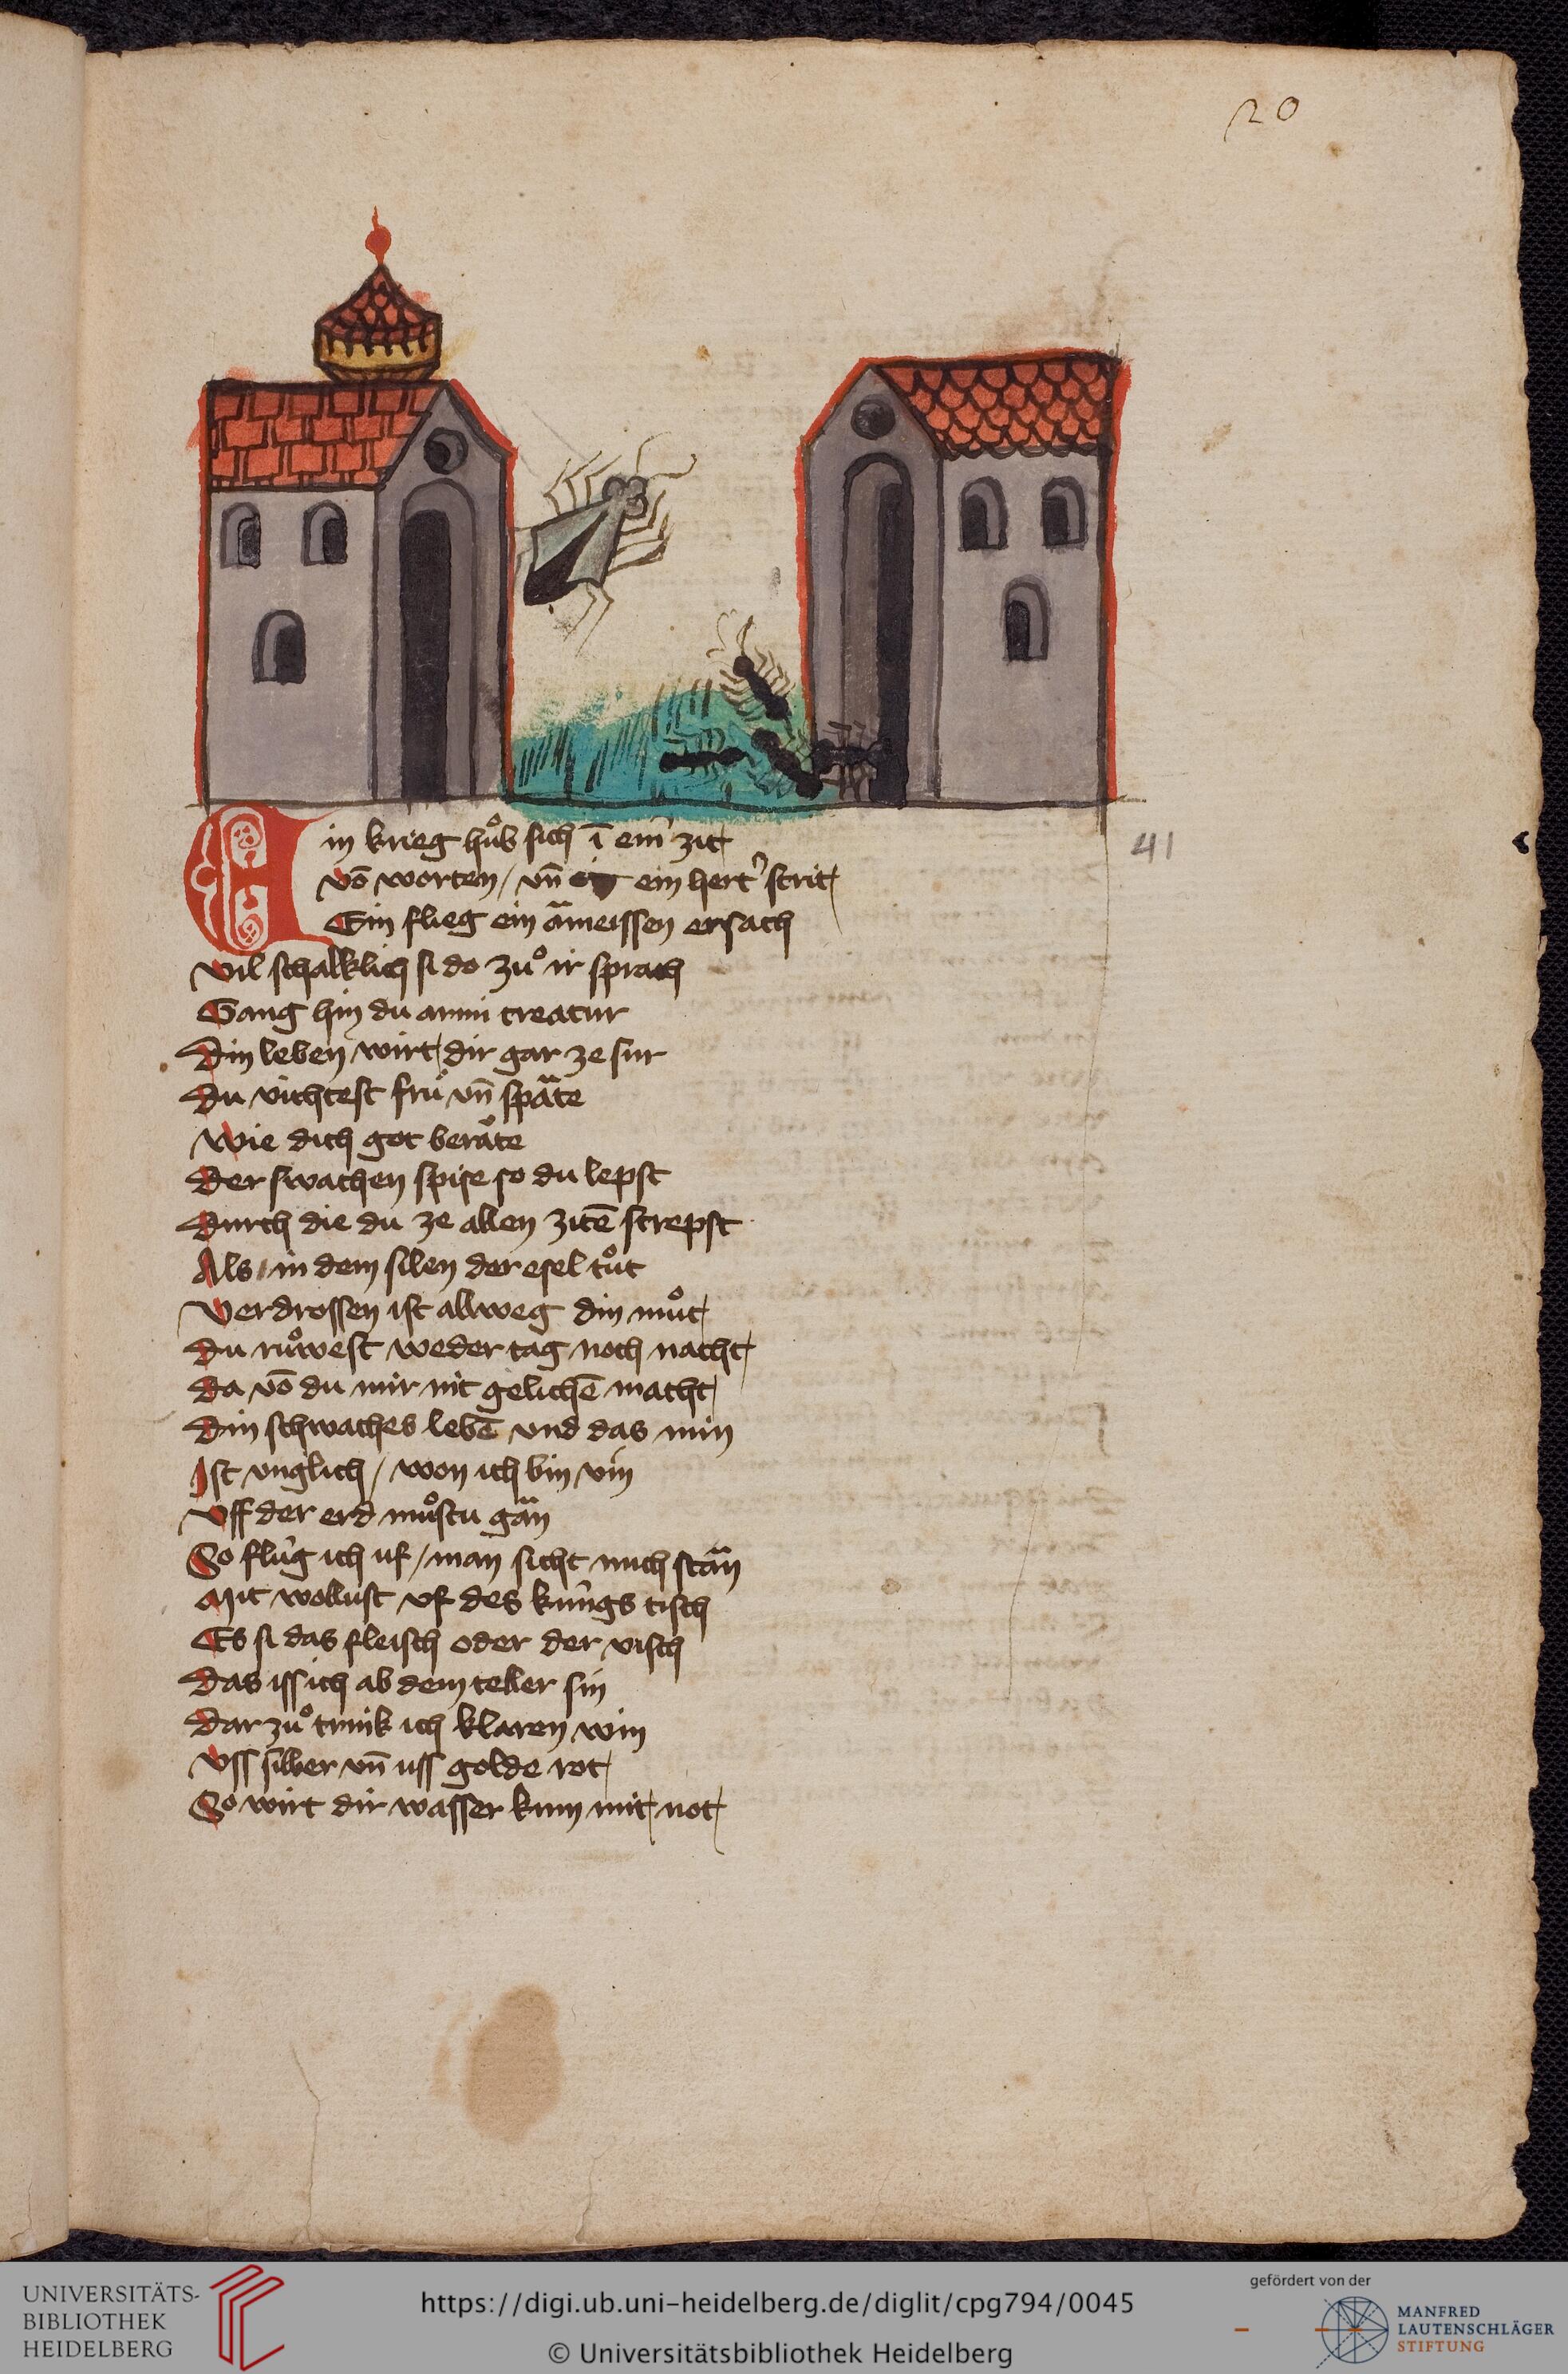 20
Ein krieg hůb sich ī eim̄ zit
vō worten / vn̄ ein hert' strit
Ein flieg ein ämeissen ersach
vil schalklich si do zuͦ ir sprach
Gang hin du armi creatur
Din leben wirt dir gar ze sur
du vichtest fruͤ vn̄ späte
wie dich got beräte
der swachen spise so du lepst
durch die du ze allen zitē strepst
Als in dem silen der esel tuͦt
verdrossen ist allweg din muͦt
du ruͦwest weder tag noch nacht
da vō du mir nit gelichē macht
din schwaches lebē und das min
Ist unglich / won ich bin vin
vff der erd muͦstu gän
So flúg ich uf / man sicht mich stän
Mit wollust vf des kúngs tisch
Es si das fleisch oder der visch
das iss ich ab dem teller sin
dar zuͦ trink ich klaren win
vss silber vn̄ uss golde rot
So wirt dir wasser kum mit not
41
UNIVERSITÄTS-
BIBLIOTHEK
HEIDELBERG
https://digi.ub.uni-heidelberg.de/diglit/cpg794/0045
© Universitätsbibliothek Heidelberg
gefördert von der
MANFRED
LAUTENSCHLÄGER
STIFTUNG